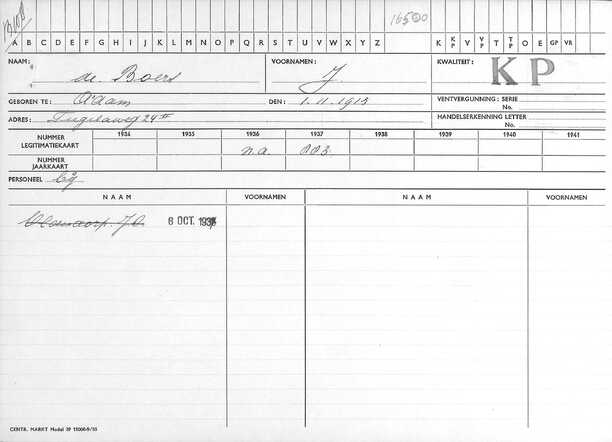 16500
A B C D E F G H I J K L M N O P Q R S T U V W X Y Z K KP V VP T TP O E GP VR
NAAM: de Boers VOORNAMEN: J. KWALITEIT: KP
GEBOREN TE: A'dam DEN: 1.11.1913 VENTVERGUNNING: SERIE
No.
ADRES: Tugelaweg 24 II HANDELSERKENNING LETTER
No.
NUMMER LEGITIMATIEKAART 1934 1935 1936 1937 1938 1939 1940 1941
n.a. 003
NUMMER JAARKAART
PERSONEEL bij
NAAM VOORNAMEN NAAM VOORNAMEN
6 OCT. 1937
CENTR. MARKT Model 39 15000-9/35